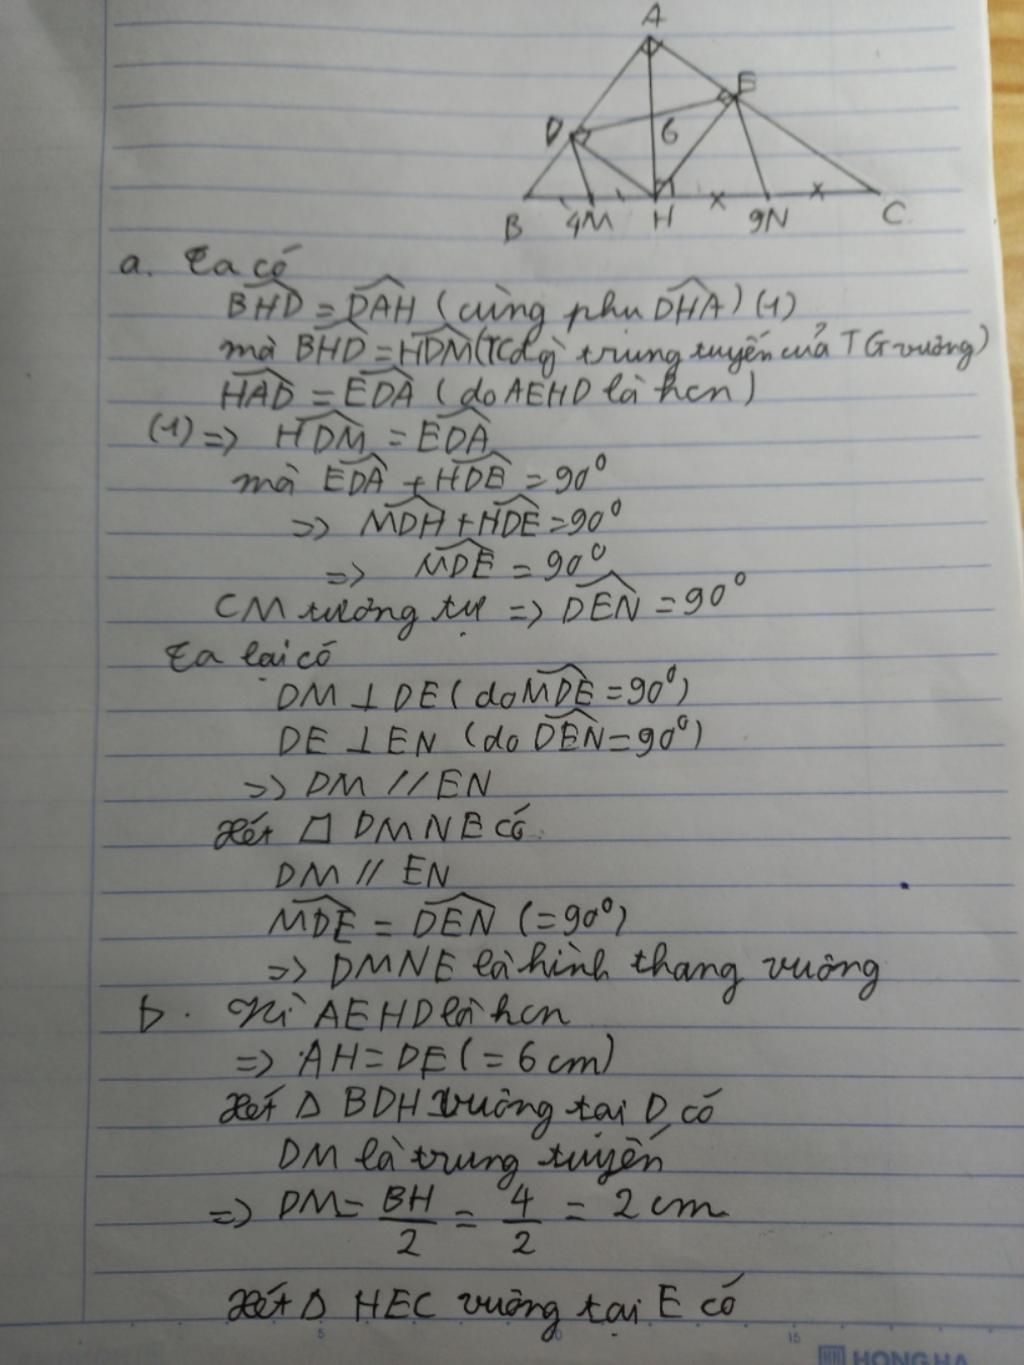 A
E
D
6
B 4M H 9N C
a. Ta có
BHD = DAH (cùng phụ DHA) (1)
mà BHD = HDM (TCđg trung tuyến của TG vuông)
HAD = EDA (do AEHD là hcn)
(1) => HDM = EDA
mà EDA + HDE = 90⁰
=> MDH + HDE = 90⁰
=> MDE = 90⁰
CM tương tự => DEN = 90⁰
Ta lại có
DM ⊥ DE (do MDE = 90⁰)
DE ⊥ EN (do DEN = 90⁰)
=> DM // EN
Xét □ DMNE có
DM // EN
MDE = DEN (= 90⁰)
=> DMNE là hình thang vuông
b. Vì AEHD là hcn
=> AH = DE (= 6 cm)
Xét Δ BDH vuông tại D có
DM là trung tuyến
=> DM = BH/2 = 4/2 = 2 cm
Xét Δ HEC vuông tại E có
5 10 15
HONG HA